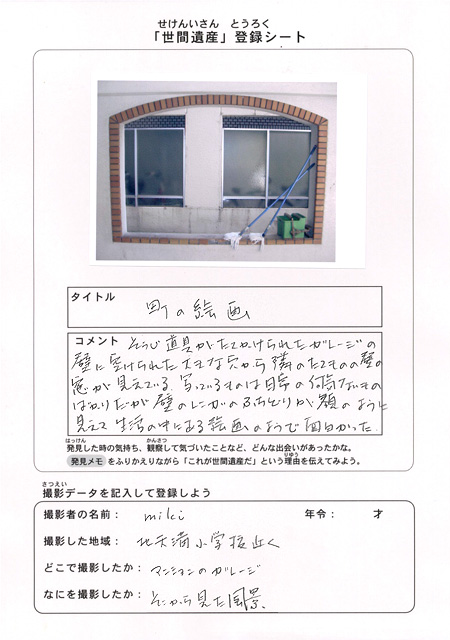 せけんいさん とうろく
「世間遺産」登録シート
タイトル
町の絵画
コメント そうじ道具がたてかけられたガレージの
壁に空けられた大きな穴から隣のたてものの壁の
窓が見えている。写っているものは日常の何気ないもの
ばかりだが壁のレンガのふちどりが額のように
見えて生活の中にある絵画のようで面白かった。
はっけん かんさつ
発見した時の気持ち、観察して気づいたことなど、どんな出会いがあったかな。
りゆう
発見メモ をふりかえりながら「これが世間遺産だ」という理由を伝えてみよう。
さつえい
撮影データを記入して登録しよう
撮影者の名前： miki 年令： 才
撮影した地域： 北天満小学校近く
どこで撮影したか： マンションのガレージ
なにを撮影したか： そこから見た風景